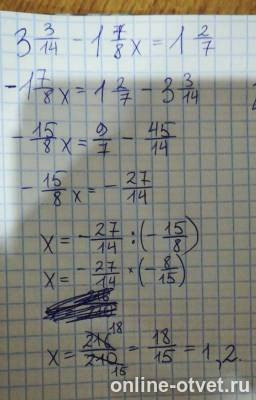 3 3/14 - 1 7/8 x = 1 2/7
-1 7/8 x = 1 2/7 - 3 3/14
-15/8 x = 9/7 - 45/14
-15/8 x = -27/14
x = -27/14 : (-15/8)
x = -27/14 * (-8/15)
x = 216 18/210 15 = 18/15 = 1,2.
online-otvet.ru